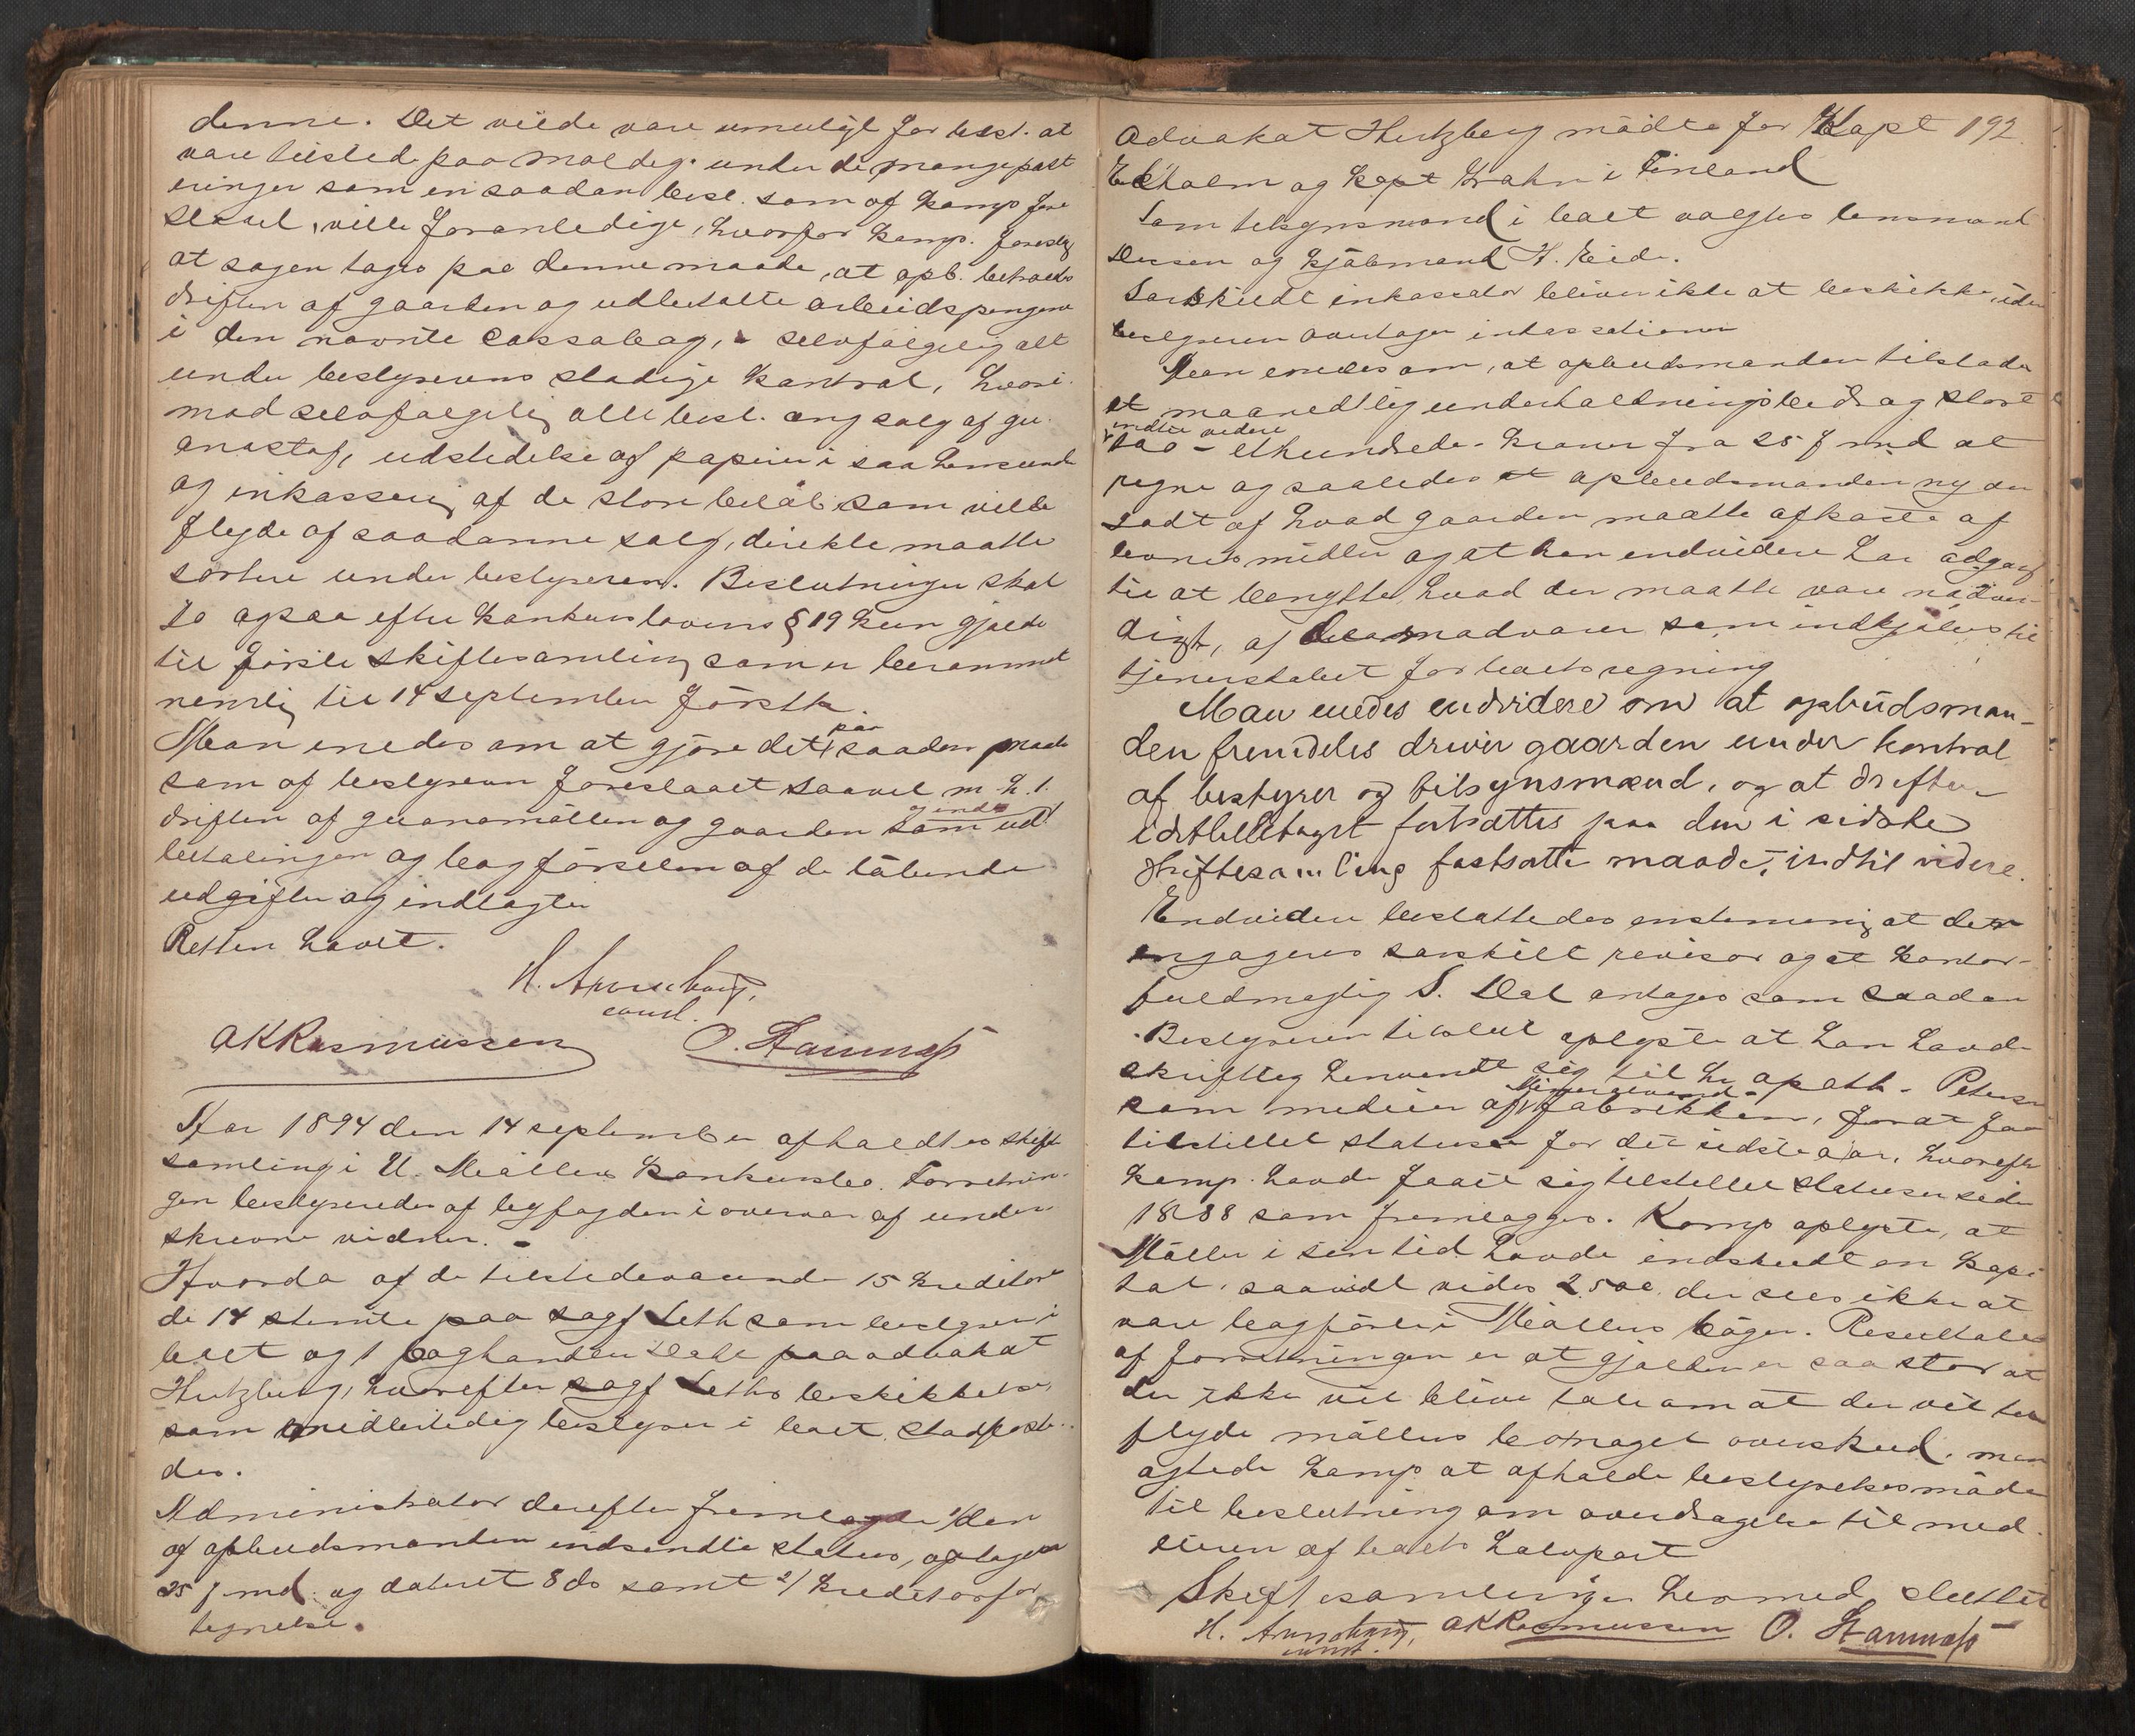 denne. Det vilde være umuligt for best. at
være tilstede paa Moldeg. under de mange post
eringer som en saadan best. som af komp fore
slaael, ville foranledige, hvorfor komp. foreslog
at sagen tages paa denne maade, at opb. betroedes
driften af gaarden og udbetalte arbeidspengene
i den nævnte cassabog, selvfølgelig alt
under bestyrerens stadige kontrol, hvori
mod selvfølgelig alle best. ang salg af gu
anostof, udstedelse af papirer i saa henseende
og inkassering af de store beløb som ville
flyde af saadanne salg, direkte maatte
sortere under bestyreren. Beslutninger skal
jo ogsaa efter konkurslovens § 19 kun gjælde
til første skiftesamling som er berammet
nemlig til 14 september førstk.
Man enedes om at gjøre det paa saadan maade
som af bestyreren foreslaaet saavel m. h. t.
driften af guanomøllen og gaarden som ud og ind
betalingen og bogførselen af de løbende
udgifter og indtægter
Retten hævet.
const.
AKRasmussen O. Hamnæss
Aar 1894 den 14 september afholdtes skifte
samling i U. Møllers konkursbo. Forretnin
gen bestyredes af bygfogden i overvær af under
skrevne vidner. -
Hvorda af de tilstedeværende 15 kreditorer
de 14 stemte paa sagf Leth som bestyrer i
boet og 1 boghandler Dahl paa advokat
Hertzberg, hvorefter sagf Leths beskikkelse
som midlertidig bestyrer i boet stadfæste
des.
Administrator derefter fremlagde 1/ den
af opbudsmanden indsendte status, optagen
25 f. md. og dateret 8 ds samt 2/ kreditorfor
tegnelse.
Advokat Hertzberg mødte for Kapt 192.
Ekholm og Kapt Krahn i Finland
Som tilsynsmænd i boet valgtes lensmand
og kjøbmand H. Eide.
Særskildt inkassator bliver ikke at beskikke, iden
bestyreren overtager inkassationen
Man enedes om, at opbudsmanden tilstaaes
et maanedtlig underholdningsbidrag stort
indtil videre
100 - ethundrede - kroner fra 25 f md at
regne og saaledes at opbudsmanden nyder
godt af hvad gaarden maatte afkaste af
levnesmidler og at han endvidere har adgang
til at benytte, hvad der maatte være nødven
digt, af de madvarer som indkjøbes til
tjenerskabet for boets regning
Man enedes endvidere om at opbudsman-
den fremdeles driver gaarden under kontrol
af bestyrer og tilsynsmænd, og at driften
i detheletaget fortsættes paa den i sidste
skiftesamling fastsatte maade, indtil videre.
Endvidere besluttedes enstemmig at der
engageres særskilt revisor og at kontor-
fuldmægtig S. Dal antages som saadan
Bestyreren tilslut oplyste at han havde
skriftlig henvendt sig til hr apoth. Petersen
som medeier af Mineralvands fabrikken, for at faa
tilstillet statuser for det sidste aar, hvorefter
komp. havde faaet sig tilstillet statuser siden
1888 som fremlægges. Komp oplyste, at
Møller i sin tid havde indskudt en kapi
tal, saavidt vides 2500, der sees ikke at
være bogført i Møllers bøger. Resultatet
af forretningen er at gjælden er saa stor at
der ikke vil blive tale om at der vil til
flyde møllers bo noget overskud, men
agtede komp at afholde bestyrelsesmøde
til beslutning om overdragelse til med
eieren af boets halvpart
Skiftesamlingen hermed sluttet
AKRasmussen O. Hamnæss